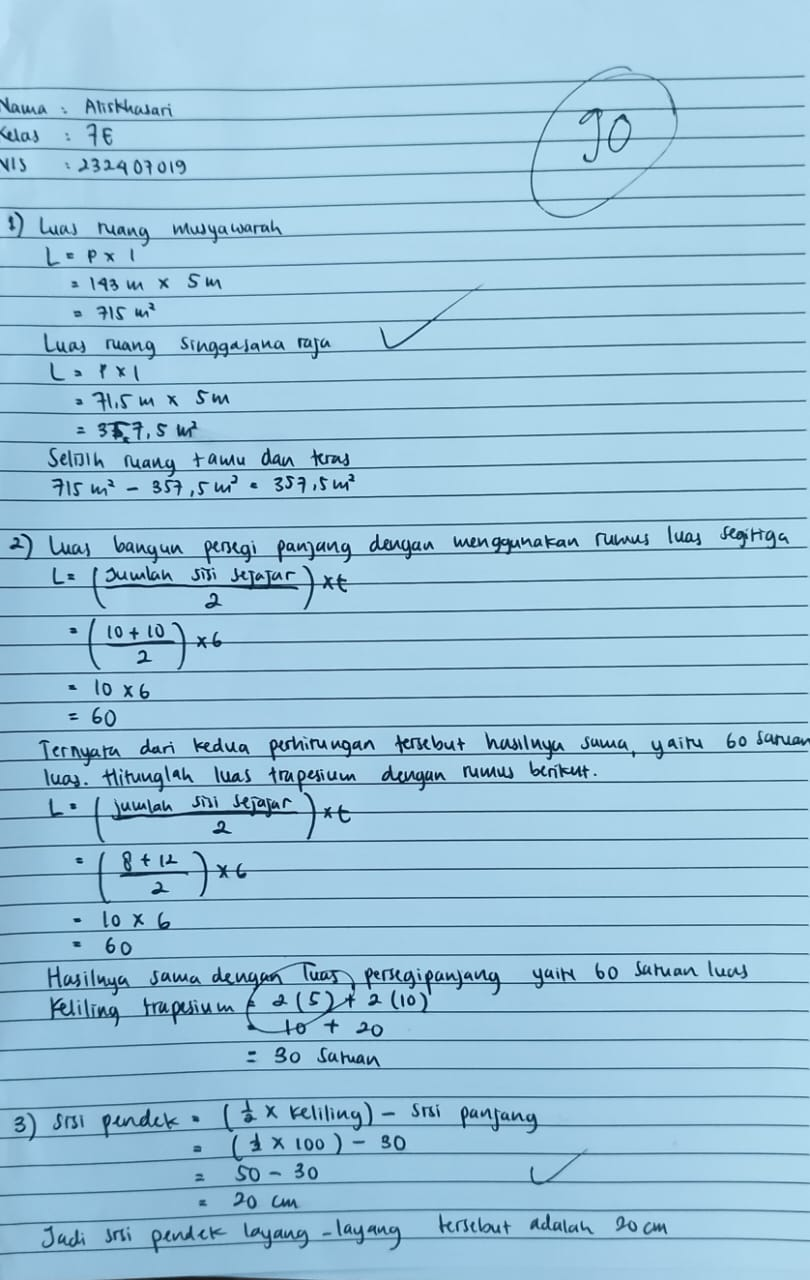 Nama : Aliskhasari
Kelas : 7E
NIS : 232407019
90
1) Luas ruang musyawarah
L = P x l
= 143 m x 5 m
= 715 m²
Luas ruang singgasana raja
L = P x l
= 71,5 m x 5 m
= 357,5 m²
Selisih ruang tamu dan teras
715 m² - 357,5 m² = 357,5 m²
2) Luas bangun persegi panjang dengan menggunakan rumus luas segitiga
L = (jumlah sisi sejajar / 2) x t
= (10 + 10 / 2) x 6
= 10 x 6
= 60
Ternyata dari kedua perhitungan tersebut hasilnya sama, yaitu 60 satuan
luas. Hitunglah luas trapesium dengan rumus berikut.
L = (jumlah sisi sejajar / 2) x t
= (8 + 12 / 2) x 6
= 10 x 6
= 60
Hasilnya sama dengan luas persegipanjang yaitu 60 satuan luas
Keliling trapesium = 2 (5) + 2 (10)
= 10 + 20
= 30 satuan
3) sisi pendek = (½ x keliling) - sisi panjang
= (½ x 100) - 30
= 50 - 30
= 20 cm
Jadi sisi pendek layang-layang tersebut adalah 20 cm